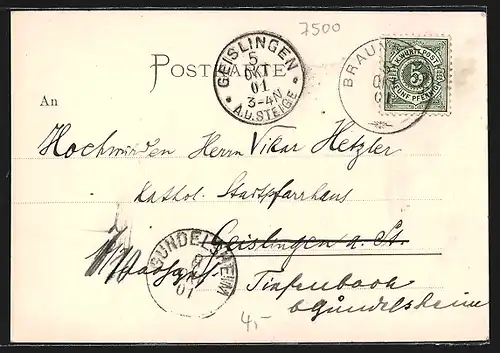 7500
POSTKARTE
GEISLINGEN
5
OKT
01
3-4N
* A.D. STEIGE *
BRAUN
OK
01
K. WÜRTT. POST
5
FÜNF PFENNIG
An
Hochwürden Herrn Vikar Hetzler
Kathol. Stadtpfarrhaus
Geislingen a. St.
GUNDELSHEIM
01
Tiefenbach
b Gundelsheim
4,-